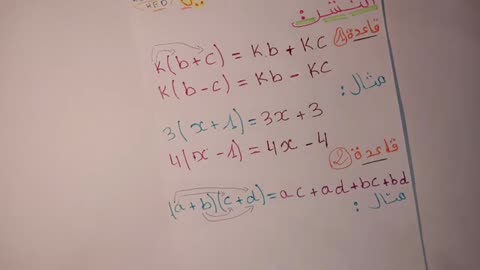 النشر:
قاعدة 1
K(b+c) = Kb + Kc
K(b-c) = Kb - Kc
مثال:
3(x+1) = 3x + 3
4(x-1) = 4x - 4
قاعدة 2
(a+b)(c+d) = ac+ad+bc+bd
مثال: